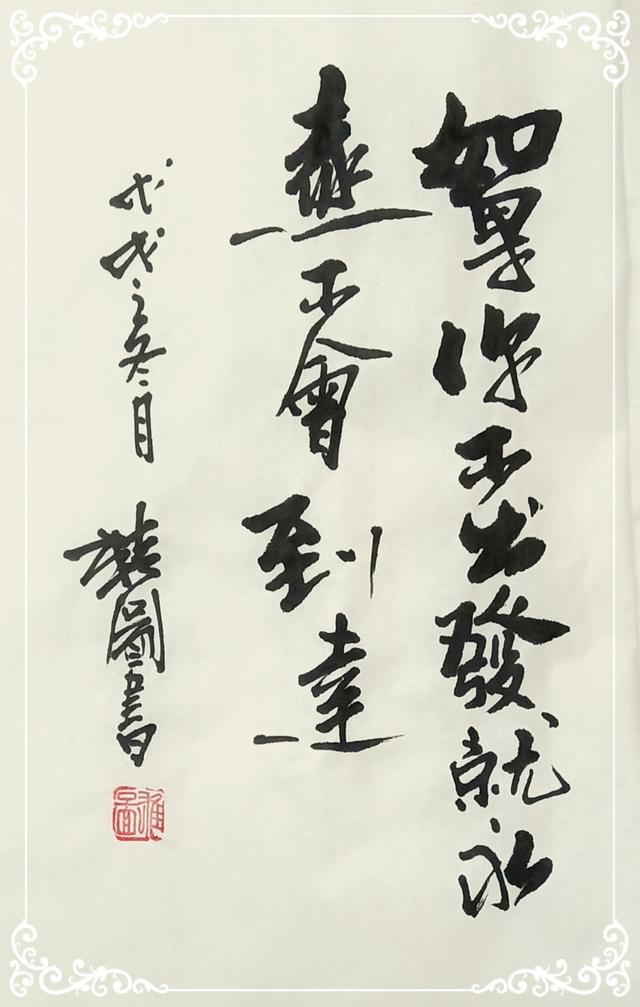 如果你不出發就永
遠不會到達
戊戌之冬月
雄圖書
雄圖